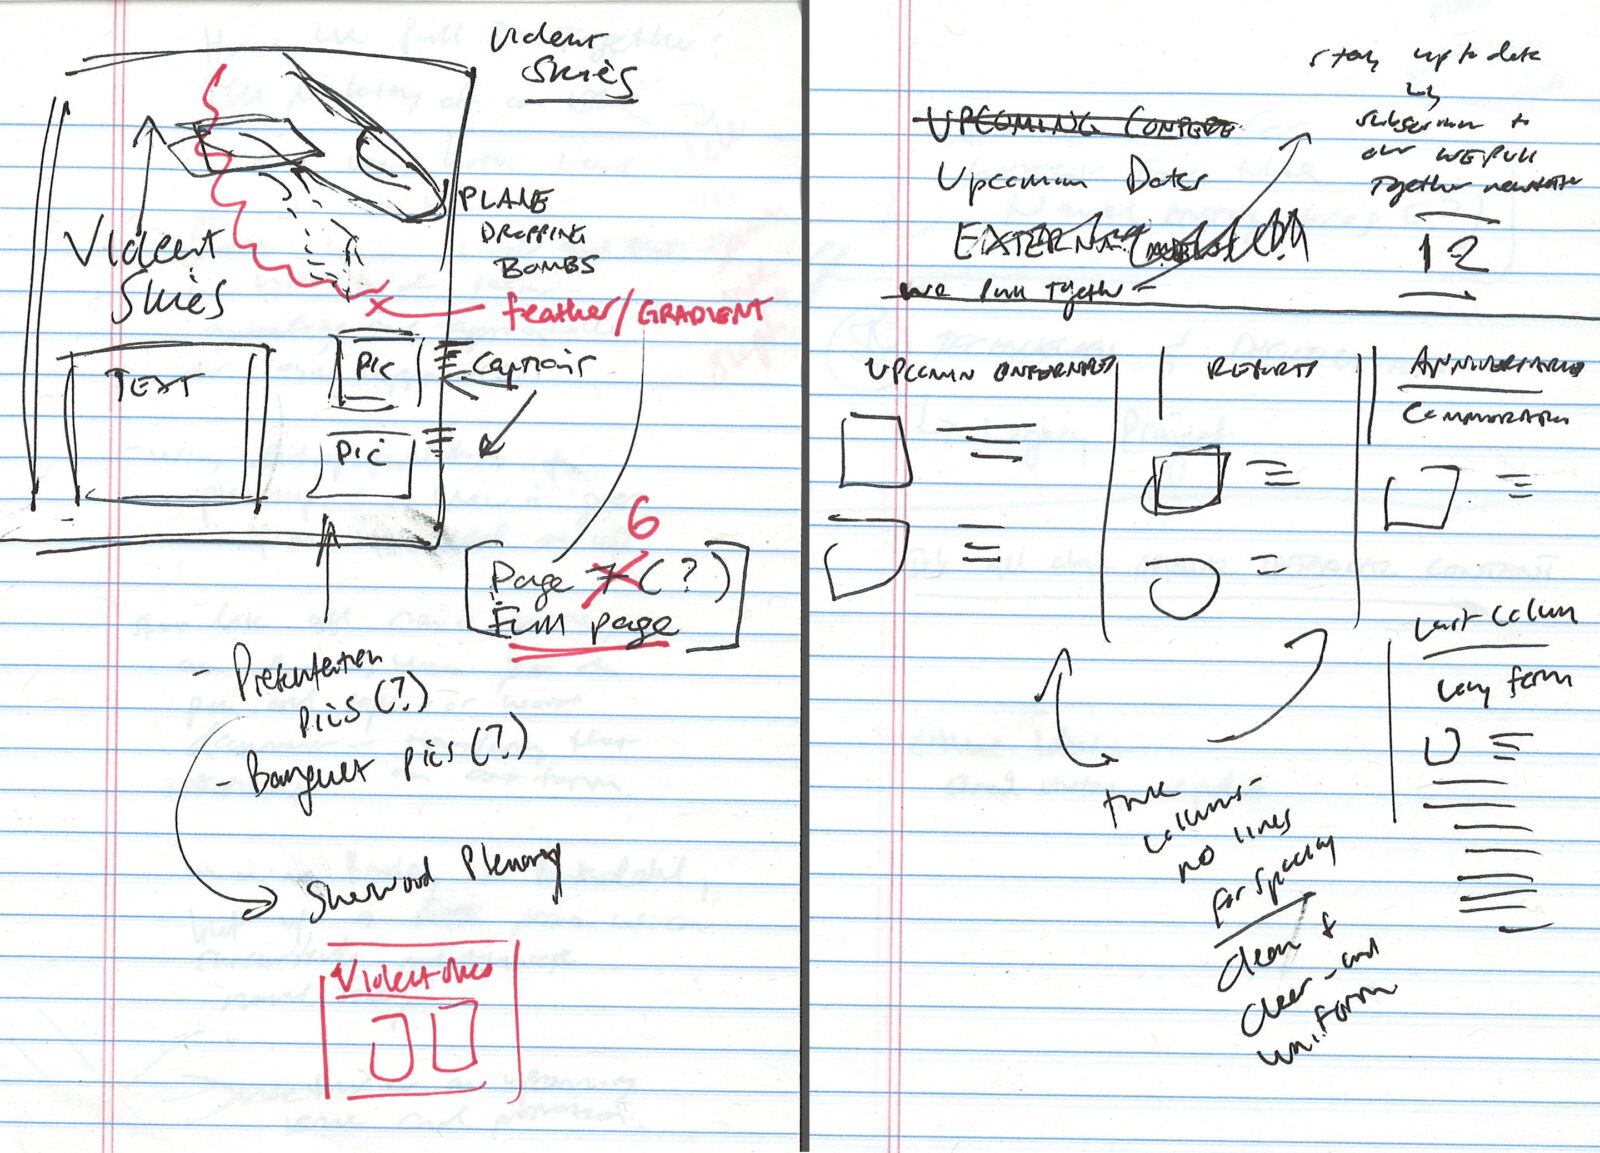 Violent
Skies
PLANE
DROPPING
BOMBS
Violent
Skies
feather/GRADIENT
TEXT
Pic
Captions
Pic
6
Page 7 (?)
Full page
- Presentation
pics (?)
- Banquet pics (?)
Sherwood Plenary
Violent Skies
stay up to date
by
subscribing to
our WE PULL
Together newsletter
UPCOMING CONFERE
Upcoming Dates
EXTERNAL
we Pull Together
12
UPCOMING CONFERENCES
REPORTS
ANNIVERSARIES
COMMEMORATIONS
Last Column
long form
three
columns -
no lines
for spacing
clean &
clear - and
uniform